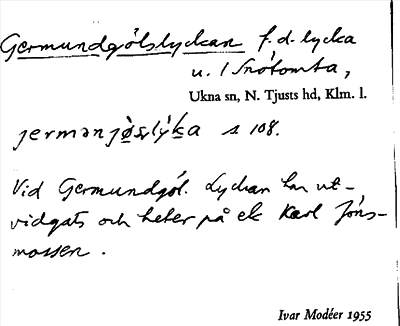 Germundgölslyckan f.d. lycka
u. 1 Snötomta,
Ukna sn, N. Tjusts hd, Klm. l.
jermənjø̀slýka s 108.
Vid Germundgöl. Lyckan har ut-
vidgats och heter på ek Karl Jöns-
mossen.
Ivar Modéer 1955